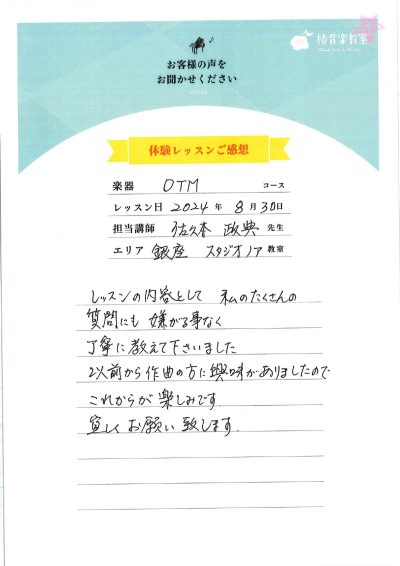 椿音楽教室
お客様の声を
お聞かせください
Voice
体験レッスンご感想
楽器 DTM コース
レッスン日 2024 年 8 月 30 日
担当講師 佐久本 政典 先生
エリア 銀座 スタジオノア 教室
レッスンの内容として 私のたくさんの
質問にも 嫌がる事なく
丁寧に教えて下さいました
以前から作曲の方に興味がありましたので
これからが楽しみです
宜しくお願い致します.